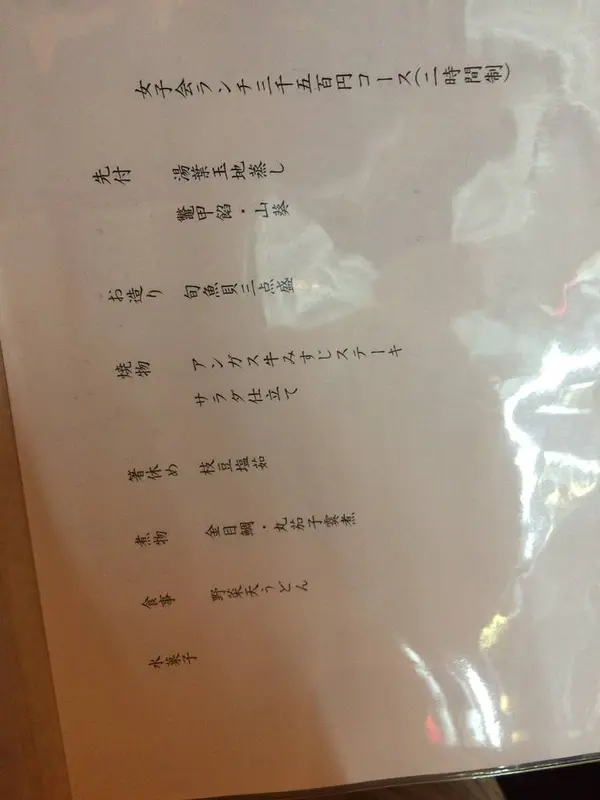 女子会ランチ三千五百円コース(二時間制)
先付 湯葉玉地蒸し
鼈甲餡・山葵
お造り 旬魚貝三点盛
焼物 アンガス牛みすじステーキ
サラダ仕立て
箸休め 枝豆塩茹
煮物 金目鯛・丸茄子雲煮
食事 野菜天うどん
水菓子